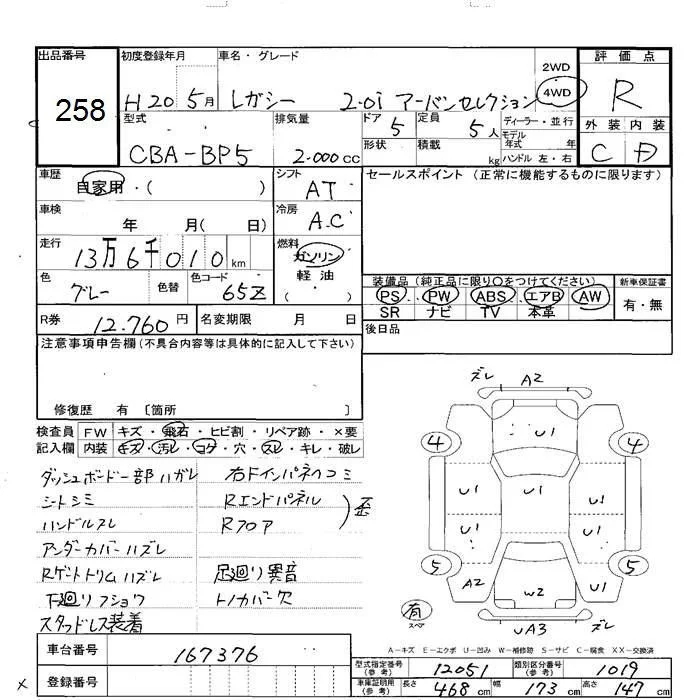 出品番号
258
初度登録年月
H 20 5月
車名・グレード
レガシー 2.0i アーバンセレクション
2WD
4WD
評価点
R
外装 内装
C D
型式
CBA-BP5
排気量
2.000 cc
ドア 5
定員 5人
形状
積載 kg
ディーラー・並行
モデル年式 年
ハンドル 左・右
車歴
自家用・( )
シフト
AT
セールスポイント (正常に機能するものに限ります)
車検
年 月( 日)
冷房
A.C
走行
13万6千010km
燃料
ガソリン
軽油
( )
色
グレー
色替
色コード
65Z
装備品(純正品に限り○をつけてください)
PS PW ABS エアB AW
SR ナビ TV 本革
新車保証書
有・無
R券
12.760円
名変期限 月 日
後日品
注意事項申告欄(不具合内容等は具体的に記入して下さい)
修復歴 有 〔箇所 〕
検査員 FW キズ・飛石・ヒビ割・リペア跡・×要
記入欄 内装 キズ・汚レ・コゲ・穴・スレ・キレ・破レ
ダッシュボード一部ハガレ
シートシミ
ハンドルスレ
アンダーカバーハズレ
Rゲートトリムハズレ
下廻りフショク
スタッドレス装着
右Fインパネヘコミ
Rエンドパネル
Rフロア
歪
足廻り異音
トノカバー欠
ズレ A2
U1
4 4
U1 U1 U1
U1 U1
5 5
A2 W2 U1
有
スペア
UA3 ズレ
A-キズ E-エクボ U-凹み W-補修跡 S-サビ C-腐食 XX-交換済
車台番号
167376
型式指定番号
(参考)
12051
類別区分番号
(参考)
1019
車庫証明用
(参考)
長さ 468 cm 幅 173 cm 高さ 147 cm
×